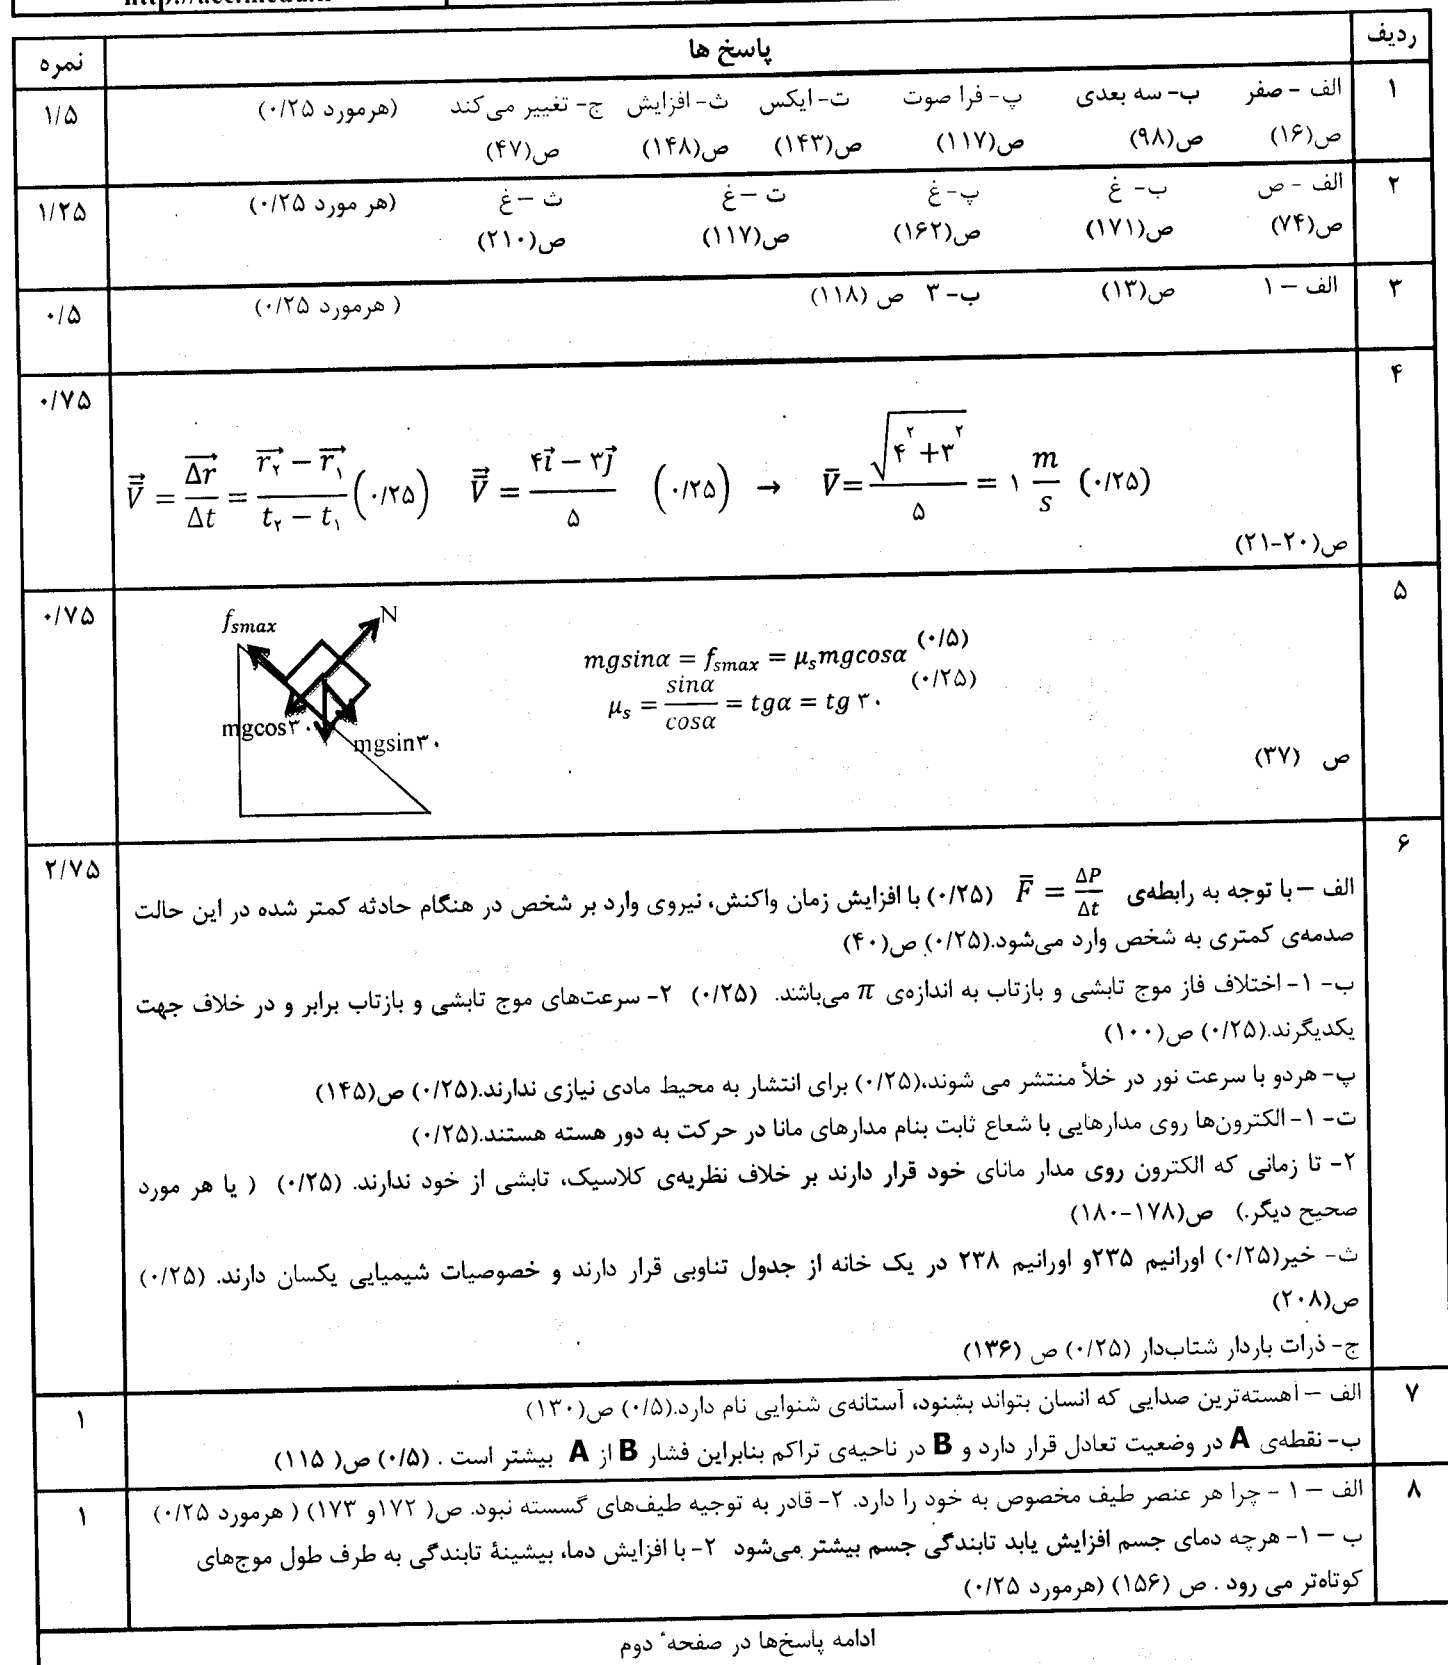 ردیف پاسخ ها نمره
۱ الف - صفر ب- سه بعدی پ- فرا صوت ت- ایکس ث- افزایش ج- تغییر می‌کند (هرمورد ۰/۲۵) ۱/۵
ص(۱۶) ص(۹۸) ص(۱۱۷) ص(۱۴۳) ص(۱۴۸) ص(۴۷)
۲ الف - ص ب- غ پ- غ ت – غ ث – غ (هر مورد ۰/۲۵) ۱/۲۵
ص(۷۴) ص(۱۷۱) ص(۱۶۲) ص(۱۱۷) ص(۲۱۰)
۳ الف – ۱ ص(۱۳) ب- ۳ ص (۱۱۸) ( هرمورد ۰/۲۵) ۰/۵
۴ ۰/۷۵
$\vec{\bar{V}} = \frac{\overrightarrow{\Delta r}}{\Delta t} = \frac{\overrightarrow{r_۲} - \overrightarrow{r_۱}}{t_۲ - t_۱} (۰/۲۵) \quad \vec{\bar{V}} = \frac{۴\vec{i} - ۳\vec{j}}{۵} \quad (۰/۲۵) \rightarrow \bar{V} = \frac{\sqrt{۴^۲ + ۳^۲}}{۵} = ۱ \frac{m}{s} (۰/۲۵)$
ص(۲۰-۲۱)
۵ ۰/۷۵
f_smax N
mgcos۳۰ mgsin۳۰
$mgsin\alpha = f_{smax} = \mu_s mgcos\alpha$ (۰/۵)
$\mu_s = \frac{sin\alpha}{cos\alpha} = tg\alpha = tg ۳۰$ (۰/۲۵)
ص (۳۷)
۶ ۲/۷۵
الف – با توجه به رابطه‌ی $\bar{F} = \frac{\Delta P}{\Delta t}$ (۰/۲۵) با افزایش زمان واکنش، نیروی وارد بر شخص در هنگام حادثه کمتر شده در این حالت
صدمه‌ی کمتری به شخص وارد می‌شود.(۰/۲۵) ص(۴۰)
ب- ۱- اختلاف فاز موج تابشی و بازتاب به اندازه‌ی π می‌باشند. (۰/۲۵) ۲- سرعت‌های موج تابشی و بازتاب برابر و در خلاف جهت
یکدیگرند.(۰/۲۵) ص(۱۰۰)
پ- هردو با سرعت نور در خلأ منتشر می شوند،(۰/۲۵) برای انتشار به محیط مادی نیازی ندارند.(۰/۲۵) ص(۱۴۵)
ت- ۱- الکترون‌ها روی مدارهایی با شعاع ثابت بنام مدارهای مانا در حرکت به دور هسته هستند.(۰/۲۵)
۲- تا زمانی که الکترون روی مدار مانای خود قرار دارند بر خلاف نظریه‌ی کلاسیک، تابشی از خود ندارند. (۰/۲۵) ( یا هر مورد
صحیح دیگر.) ص(۱۷۸-۱۸۰)
ث- خیر(۰/۲۵) اورانیم ۲۳۵و اورانیم ۲۳۸ در یک خانه از جدول تناوبی قرار دارند و خصوصیات شیمیایی یکسان دارند. (۰/۲۵)
ص(۲۰۸)
ج- ذرات باردار شتاب‌دار (۰/۲۵) ص (۱۳۶)
۷ الف – آهسته‌ترین صدایی که انسان بتواند بشنود، آستانه‌ی شنوایی نام دارد.(۰/۵) ص(۱۳۰) ۱
ب- نقطه‌ی A در وضعیت تعادل قرار دارد و B در ناحیه‌ی تراکم بنابراین فشار B از A بیشتر است . (۰/۵) ص( ۱۱۵)
۸ الف – ۱ - چرا هر عنصر طیف مخصوص به خود را دارد. ۲- قادر به توجیه طیف‌های گسسته نبود. ص( ۱۷۲و ۱۷۳) ( هرمورد ۰/۲۵) ۱
ب – ۱- هرچه دمای جسم افزایش یابد تابندگی جسم بیشتر می‌شود ۲- با افزایش دما، بیشینهٔ تابندگی به طرف طول موج‌های
کوتاه‌تر می رود . ص (۱۵۶) (هرمورد ۰/۲۵)
ادامه پاسخ‌ها در صفحهٔ دوم